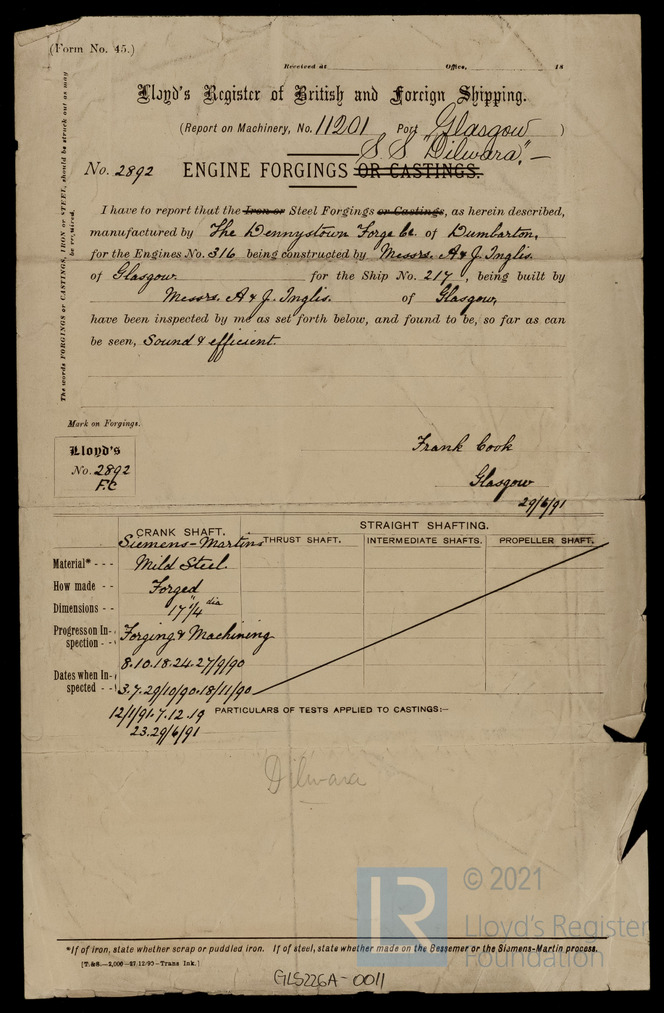 (Form No. 45.)
Received at Office, 18
Lloyd's Register of British and Foreign Shipping.
(Report on Machinery, No. 11201 Port Glasgow )
S.S "Dilwara," –
No. 2892 ENGINE FORGINGS OR CASTINGS.
The words FORGINGS or CASTINGS, IRON or STEEL, should be struck out as may be required.
I have to report that the Iron or Steel Forgings or Castings, as herein described,
manufactured by The Dennystown Forge Co. of Dumbarton,
for the Engines No. 316 being constructed by Messrs. A & J. Inglis.
of Glasgow for the Ship No. 217, being built by
Messrs. A & J. Inglis. of Glasgow,
have been inspected by me as set forth below, and found to be, so far as can
be seen, Sound & efficient.
Mark on Forgings.
Lloyd's
No. 2892
F.C
Frank Cook
Glasgow
29/6/91
CRANK SHAFT. STRAIGHT SHAFTING.
Siemens-Martins THRUST SHAFT. INTERMEDIATE SHAFTS. PROPELLER SHAFT.
Material* - - - Mild Steel.
How made - - Forged
Dimensions - - 17 1/4" dia
Progress on In-spection - - Forging & Machining
8.10.18.24.27/9/90
Dates when In-spected - - 3.7.29/10/90.18/11/90
12/1/91.7.12.19
23.29/6/91
PARTICULARS OF TESTS APPLIED TO CASTINGS:–
Dilwara
*If of iron, state whether scrap or puddled iron. If of steel, state whether made on the Bessemer or the Siemens-Martin process.
[T.&S.—2,000—27.12/90—Trans Ink.]
GLS226A-0011
LR © 2021
Lloyd's Register
Foundation